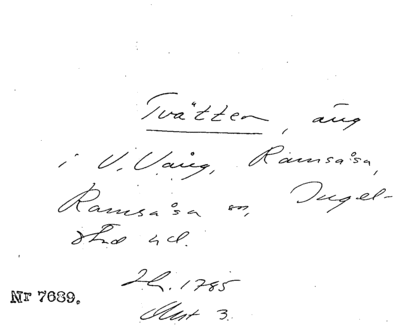 Tvätten, äng
i V. Vång, Ramsåsa,
Ramsåsa sn, Ingel-
stad hd.
1785
3.
Nr 7689.